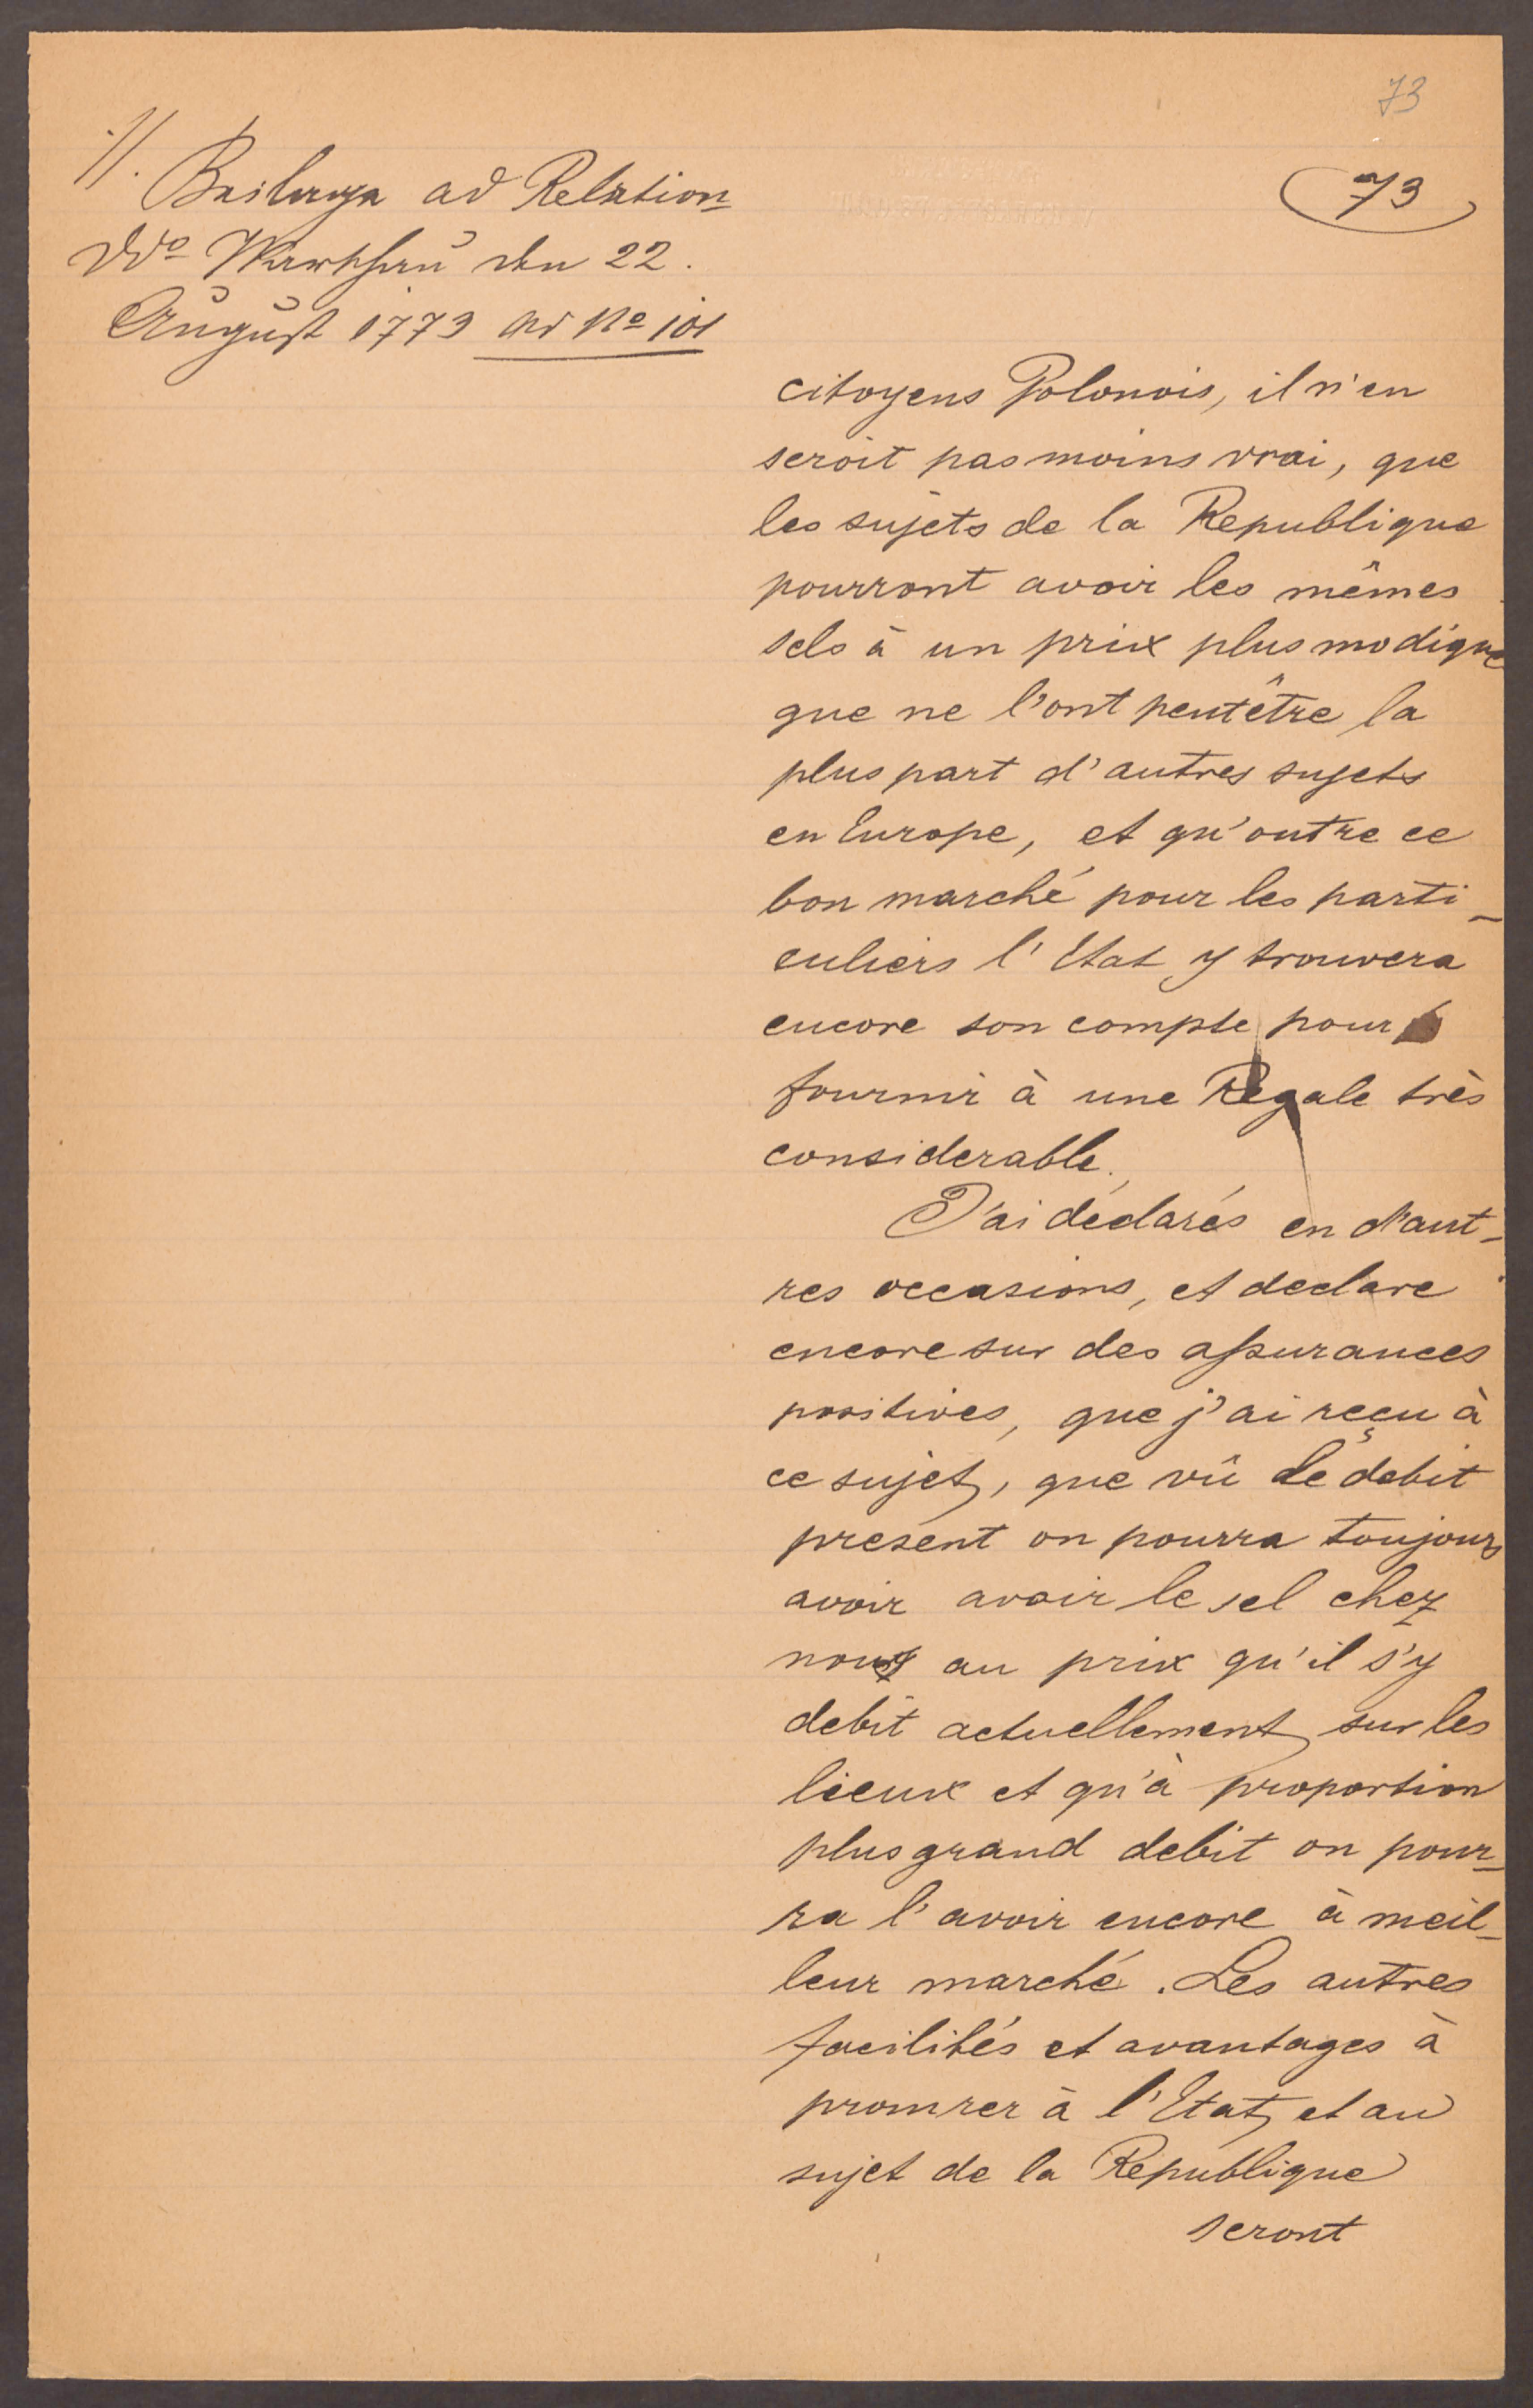 73
73
·//. Beilage ad Relation
ddo Warschau den 22.
August 1773 ad No 101
citoyens Polonois, il n'en
seroit pas moins vrai, que
les sujets de la Republique
pourront avoir les mêmes
sels à un prix plus modique
que ne l'ont peutêtre la
plus part d'autres sujets
en Europe, et qu'outre ce
bon marché pour les parti-
culiers l'Etat y trouvera
encore son compte pour
fournir à une Regale très
considerable.
J'ai déclarés en d'aut-
res occasions, et declare
encore sur des assurances
positives, que j'ai reçu à
ce sujet, que vû le debit
present on pourra toujours
avoir avoir le sel chez
nous au prix qu'il s'y
debit actuellement sur les
lieux et qu'à proportion
plus grand debit on pour-
ra l'avoir encore à meil-
leur marché. Les autres
facilités et avantages à
promrer à l'Etat et au
sujet de la Republique
seront